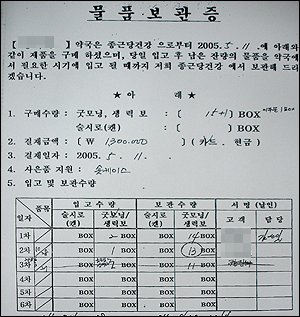 물 품 보 관 증
[ ] 약국은 종근당건강 으로부터 2005. 5. 11. 에 아래와
같이 제품을 구매 하였으며, 당일 입고 후 남은 잔량의 물품을 약국에
서 필요한 시기에 입고 될 때까지 저희 종근당건강 에서 보관해 드리
겠습니다.
★ 아 래 ★
1. 구매수량 : 굿모닝, 생력보 : ( 15+1 ) BOX
술시로(캔) : ( ) BOX
2. 결제금액 : [ ₩ 1300.000 ] (카드, 현금)
3. 결제일자 : 2005. 5. 11.
4. 사은품 지원 :
5. 입고 및 보관수량
품목 입고수량 보관수량 서명 (날인)
일자 술시로(캔) 굿모닝/생력보 술시로(캔) 굿모닝/생력보 고객 담당
1차 BOX 2 BOX BOX 14 BOX
2차 BOX 1 BOX BOX 13 BOX
3차 BOX 2 BOX BOX 11 BOX
4차 BOX BOX BOX BOX
5차 BOX BOX BOX BOX
6차 BOX BOX BOX BOX